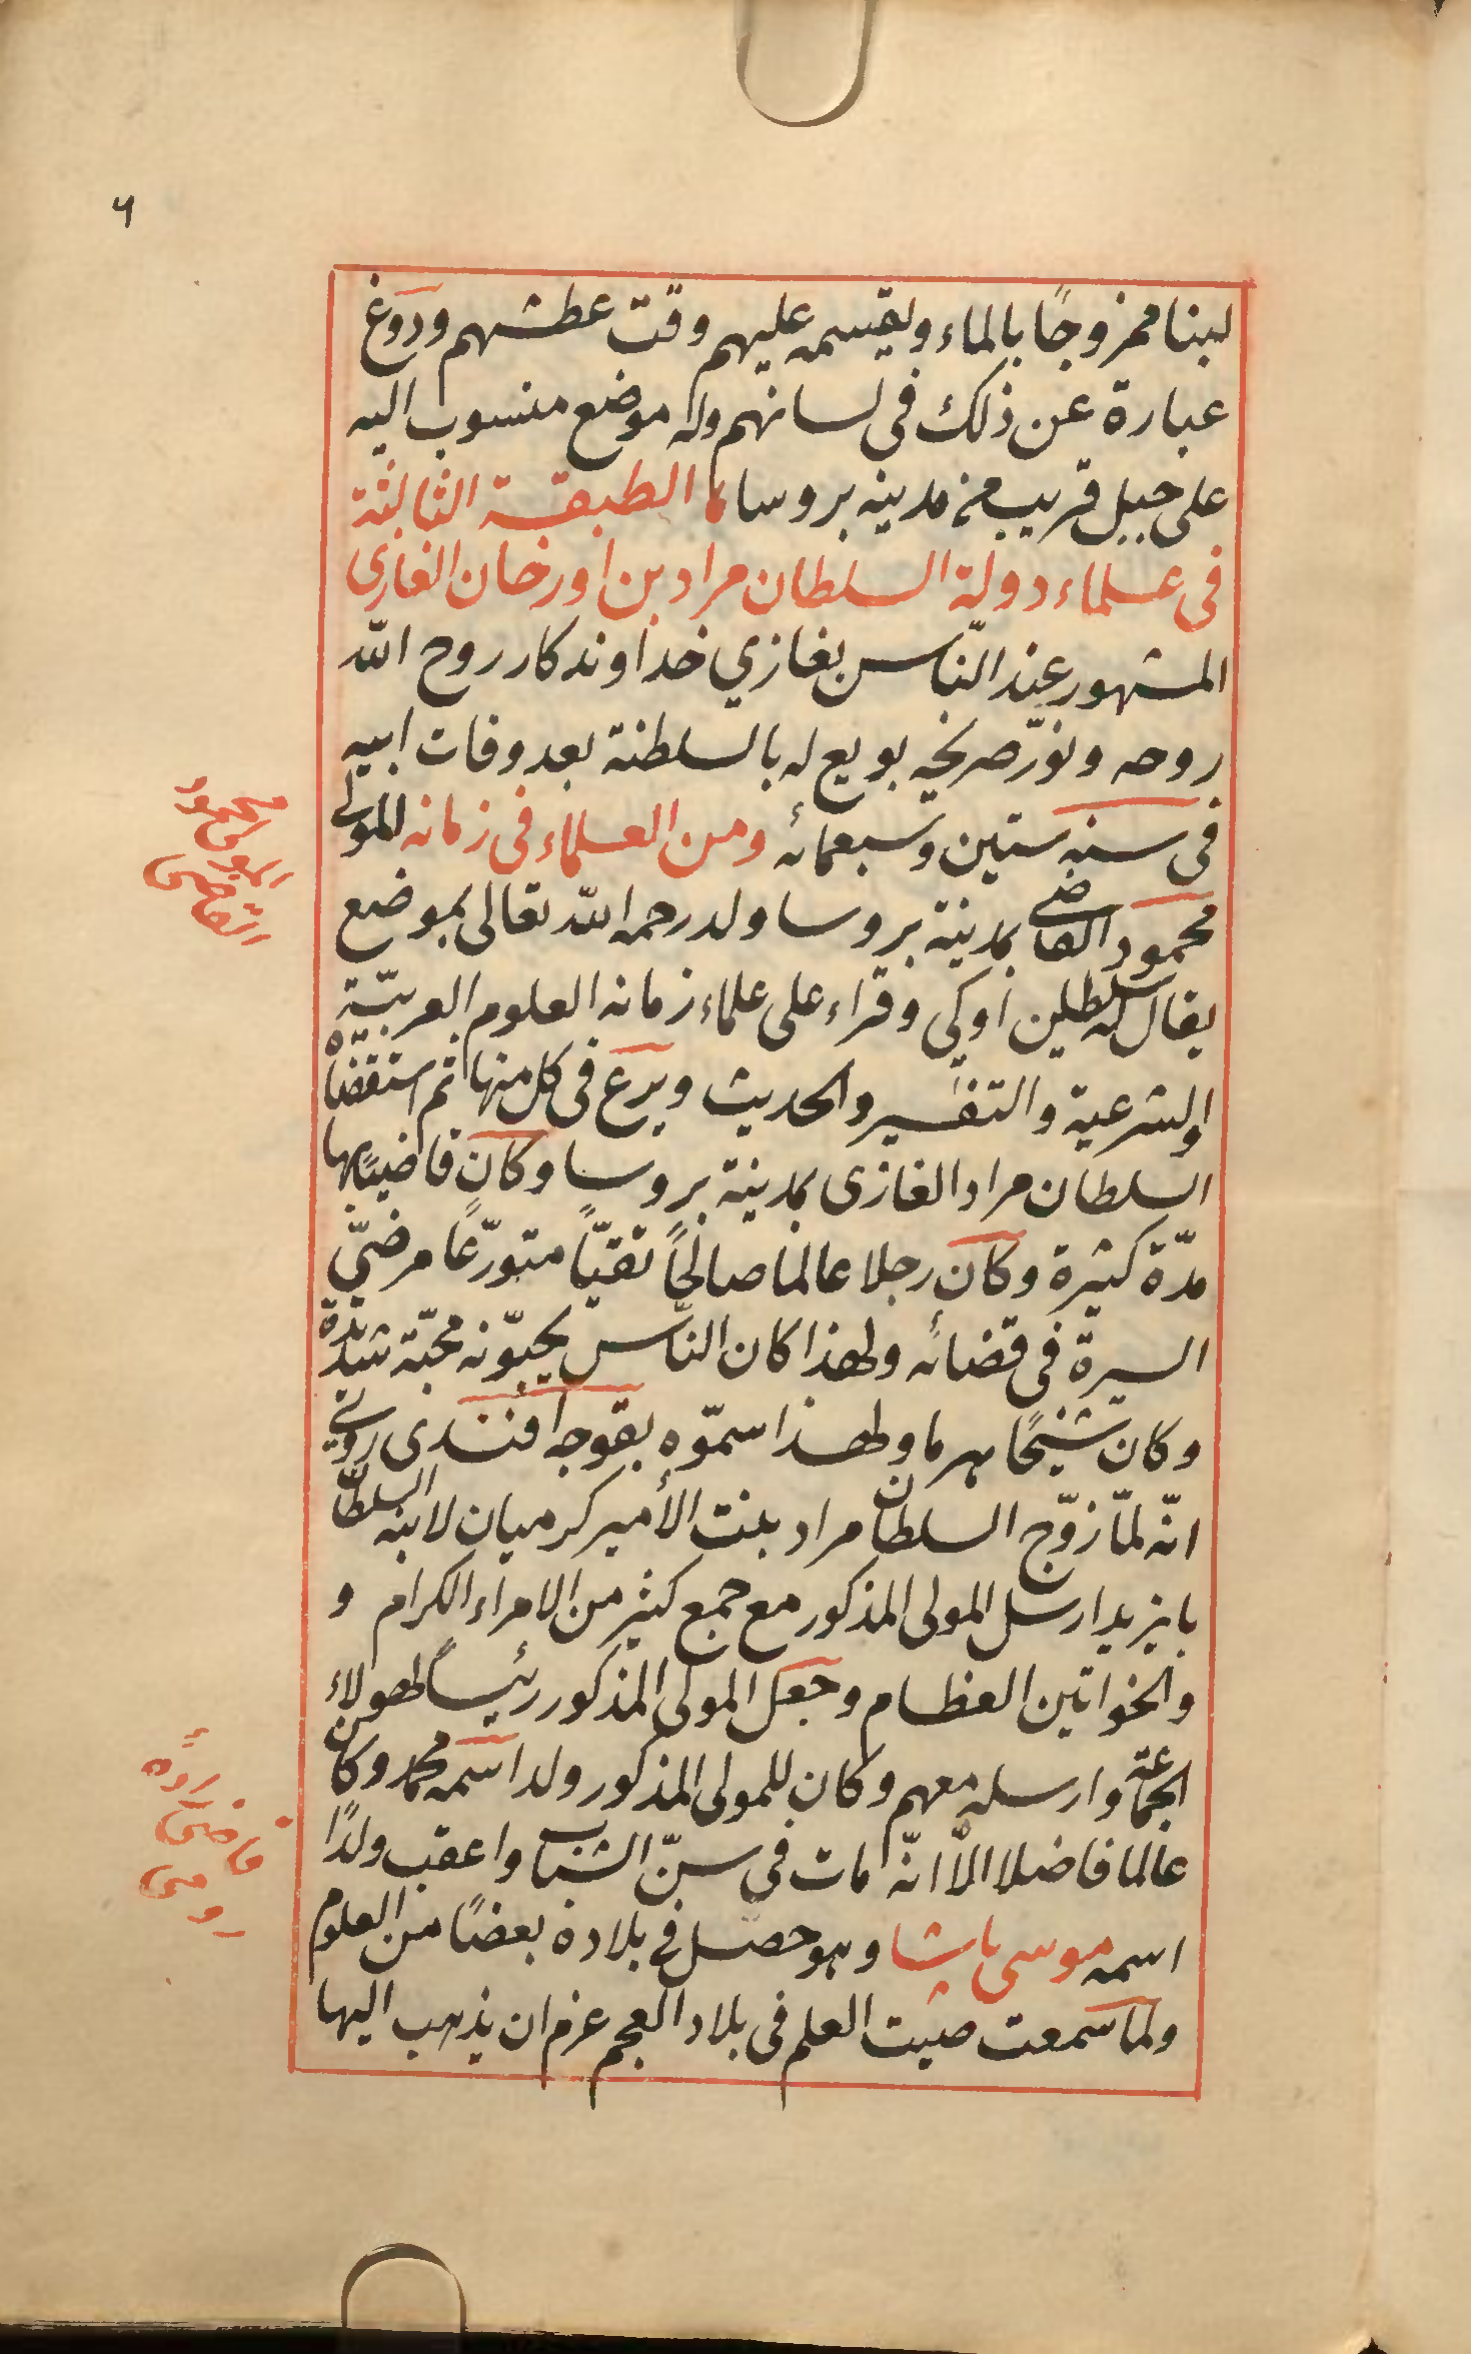 ٦
لبنا ممزوجًا بالماء ويقسمه عليهم وقت عطشهم ودوغ
عبارة عن ذلك فى لسانهم وله موضع منسوب اليه
على جبل قريب من مدينه بروسا الطبقة الثالثة
فى علماء دولة السلطان مراد بن اورخان الغازى
المشهور عند النّاس بغازي خداوندكار روح الله
روحه ونوّر ضريحه بويع له بالسلطنة بعد وفات ابيه
فى سنه ستين وسبعمائه ومن العلماء فى زمانه المولى
محمود القاضى بمدينة بروسا ولد رحمه الله تعالى بموضع
يقال له سلطان اوكى وقراء على علماء زمانه العلوم العربيّة
والشرعية والتفسير والحديث وبرع فى كل منها ثم استقضاه
السلطان مراد الغازى بمدينة بروسا وكان قاضيًا بها
مدّة كثيرة وكان رجلا عالما صالحًا تقيّا متورّعًا مرضىّ
السيرة فى قضائه ولهذا كان النّاس يحبّونه محبّة شديدة
وكان شيخًا هرما ولهذا سمّوه بقوجه افندى روى
انّه لمّا زوّج السلطان مراد بنت الأمير كرميان لابنه السلطان
بايزيد ارسل المولى المذكور مع جمع كثير من الامراء الكرام و
والخواتين العظام وجعل المولى المذكور رئيسًا لهولاء
الجماعة وارسله معهم وكان للمولى المذكور ولد اسمه محمد وكان
عالما فاضلا الّا انّه مات فى سنّ الشباب واعقب ولدًا
اسمه موسى پاشا وهو حصّل فى بلاده بعضًا من العلوم
ولما سمعت صيت العلم فى بلاد العجم عزم ان يذهب اليها
محمود
القاضى
قاضى زاده
رومى